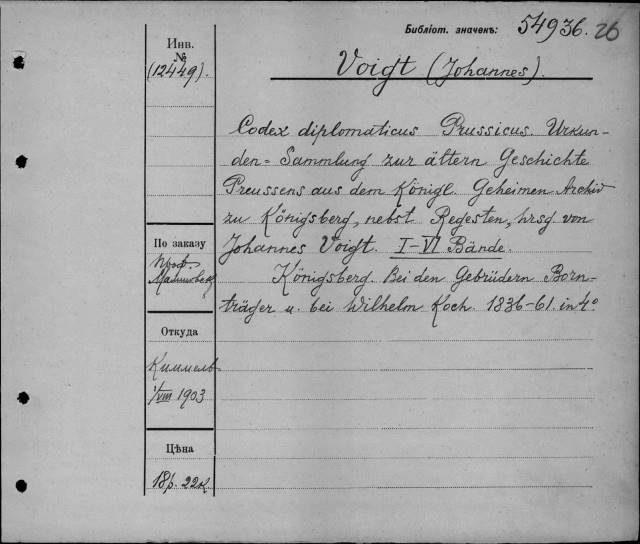 Библіот. значекъ: 54936. 26
Инв.
№
(12449).
Voigt (Johannes).
Codex diplomaticus Prussicus. Urkun-
den-Sammlung zur ältern Geschichte
Preussens aus dem Königl. Geheimen Archiv
zu Königsberg, nebst Regesten, hrsg von
Johannes Voigt. I-VI Bände.
Königsberg. Bei den Gebrüdern Born-
träger u. bei Wilhelm Koch. 1836-61. in 4°
По заказу
проф.
Откуда
Киммель
1/VIII 1903
Цѣна
18р. 22к.